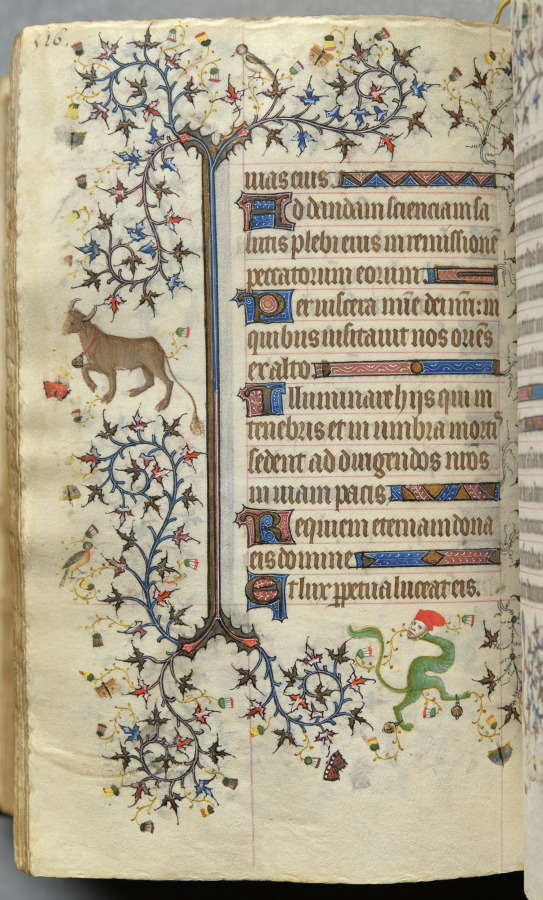 516.
uias eius
Ad dandam scienciam sa
lutis plebi eius in remissionē
peccatorum eorum
Per uiscera mīe dei nr̄i: in
quibus uisitauit nos oriēs
ex alto
Illuminare hijs qui in
tenebris et in umbra mortis
sedent ad dirigendos n̄ros
in uiam pacis
Requiem eternam dona
eis domine
Et lux ꝑpetua luceat eis.